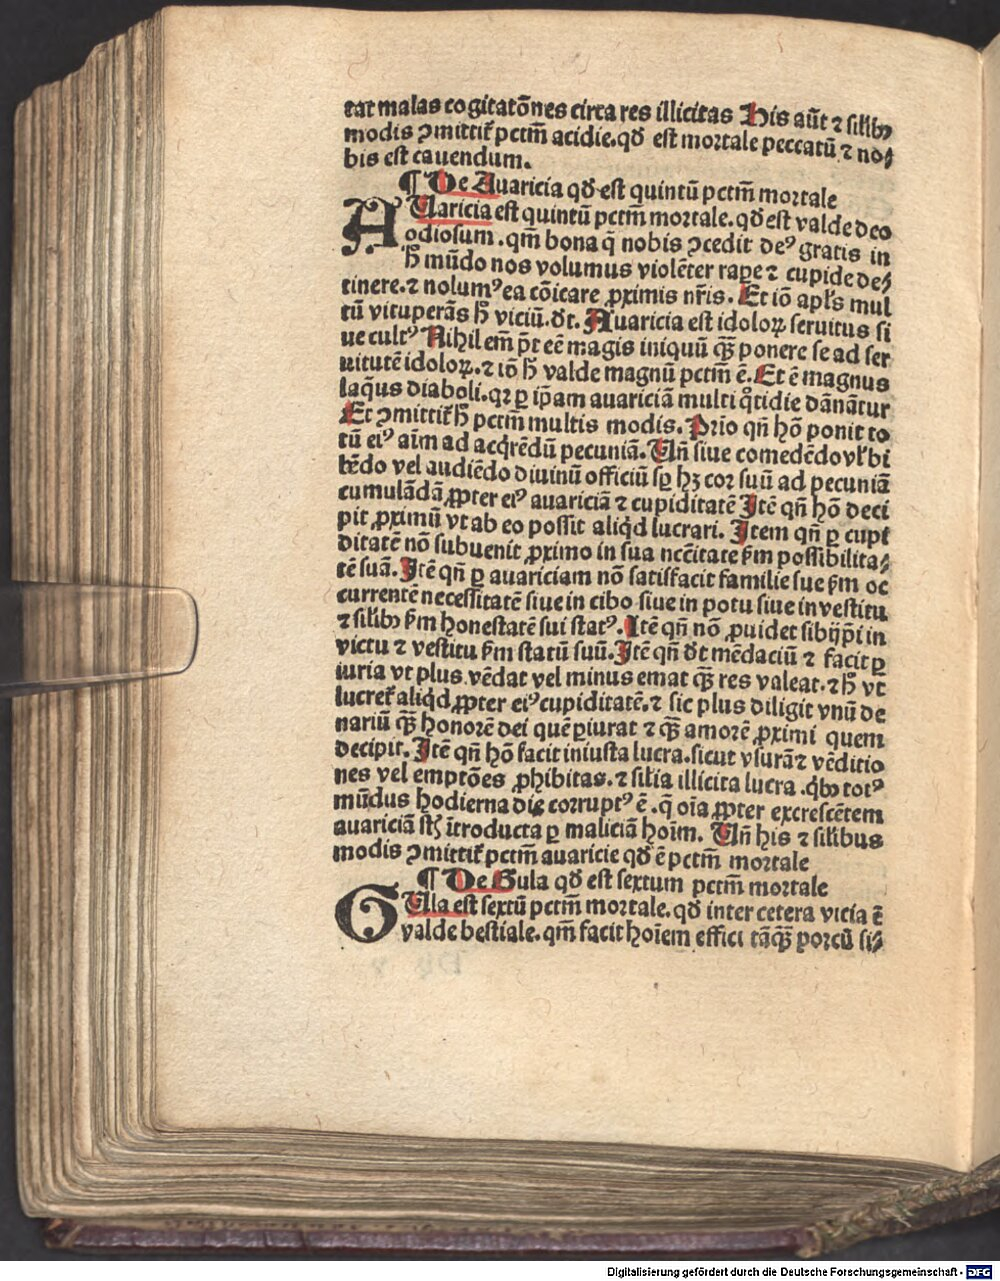 tat malas cogitatōnes circa res illicitas His aūt ⁊ silibꝫ
modis ꝯmittit̄ pctm̄ acidie.qḋ est mortale peccatū ⁊ no⸗
bis est cauendum.
¶ De Auaricia qḋ est quintū pctm̄ moꝛtale
AUaricia est quintū pctm̄ moꝛtale.qḋ est valde deo
odiosum.qm̄ bona q̄ nobis ꝯcedit deꝰ gratis in
h̄ mūdo nos volumus violēter rape ⁊ cupide de⸗
tinere.⁊ nolumꝰ ea cōicare ꝓximis nr̄is. Et iō apl̄s mul
tū vituperās h̄ viciū.ḋt. Auaricia est idoloꝝ seruitus si
ue cultꝰ Nihil em̄ pt̄ eē magis iniquū qꝫ̄ ponere se ad ser
uitutē idoloꝝ.⁊ iō h̄ valde magnū pctm̄ ē. Et ē magnus
laq̄us diaboli.qꝛ ꝑ ip̄am auariciā multi qͦtidie dānātur
Et ꝯmittit̄ h̄ pctm̄ multis modis. Prīo qn̄ hō ponit to
tū eiꝰ aīm ad acqͥrēdū pecuniā. Un̄ siue comedēdo vl̓ bi
bēdo vel audiēdo diuinū officiū sꝑ hꝫ coꝛ suū ad pecuniā
cumulādā ꝓpter eiꝰ auariciā ⁊ cupiditatē Itē qn̄ hō deci
pit ꝓximū vt ab eo possit aliqͥd lucrari. Item qn̄ ꝑ cupi
ditatē nō subuenit ꝓximo in sua ncc̄itate ẜm possibilita⸗
tē suā. Itē qn̄ ꝑ auariciam nō satisfacit familie sue ẜm oc
currentē necessitatē siue in cibo siue in potu siue in vestitu
⁊ silibꝫ ẜm honestatē sui statꝰ. Itē qn̄ nō ꝓuidet sibijp̄i in
victu ⁊ vestitu ẜm statū suū. Itē qn̄ ḋt mēdaciū ⁊ facit ꝑ
iuria vt plus vēdat vel minus emat qꝫ̄ res valeat.⁊ h̄ vt
lucret̄ aliqͥd ꝓpter eiꝰ cupiditatē.⁊ sic plus diligit vnū de
nariū qꝫ̄ honoꝛē dei quē ꝑiurat ⁊ qꝫ̄ amoꝛē ꝓximi quem
decipit. Itē qn̄ hō facit iniusta lucra.sicut vsurā ⁊ vēditio
nes vel emptōes ꝓhibitas.⁊ silia illicita lucra.qͥbꝫ totꝰ
mūdus hodierna die coꝛruptꝰ ē.q̄ oīa ꝓpter excrescētem
auariciā st̄ ītroducta ꝑ maliciā hoīm. Un̄ his ⁊ silibus
modis ꝯmittit̄ pctm̄ auaricie qḋ ē pctm̄ moꝛtale
¶ De Gula qḋ est sextum pctm̄ moꝛtale
GUla est sextū pctm̄ moꝛtale.qḋ inter cetera vicia ē
valde bestiale.qm̄ facit hoīem effici tāqꝫ̄ poꝛcū si⸗
Digitalisierung gefördert durch die Deutsche Forschungsgemeinschaft - DFG